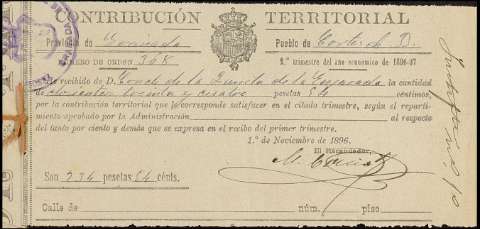 CONTRIBUCIÓN TERRITORIAL
Provincia de Granada Pueblo de
NÚMERO DE ORDEN 368 2.º trimestre del año económico de 1896-97
He recibido de D. Conde de la Puerta de la cantidad
de doscientas treinta y cuatro pesetas 64 céntimos,
por la contribución territorial que le corresponde satisfacer en el citado trimestre, según el reparti-
miento aprobado por la Administración al respecto
del tanto por ciento y donde que se expresa en el recibo del primer trimestre.
1.º de Noviembre de 1896.
El Recaudador,
Son 234 pesetas 64 cénts.
Calle de núm. piso